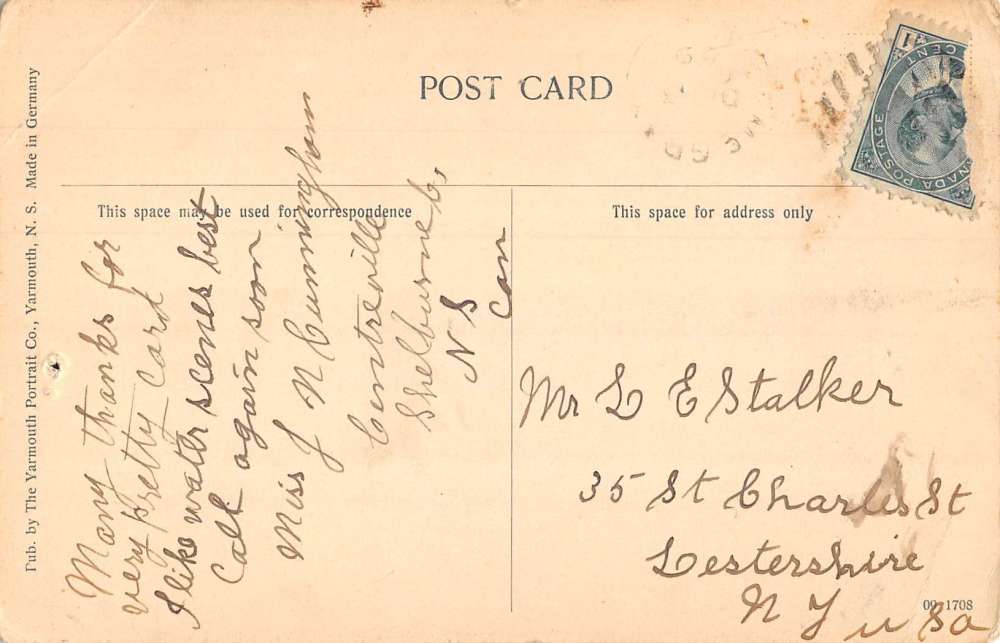 POST CARD
1 CENT
CANADA POSTAGE
This space may be used for correspondence
This space for address only
Pub. by The Yarmouth Portrait Co., Yarmouth, N. S. Made in Germany
Many thanks for
very pretty card
I like water scenes best
Call again soon
Miss J N Cunningham
Centreville
Shelburne Co,
N S
Can
Mr L E Stalker
35 St Charles St
Lestershire
N Y U S a
09 1708